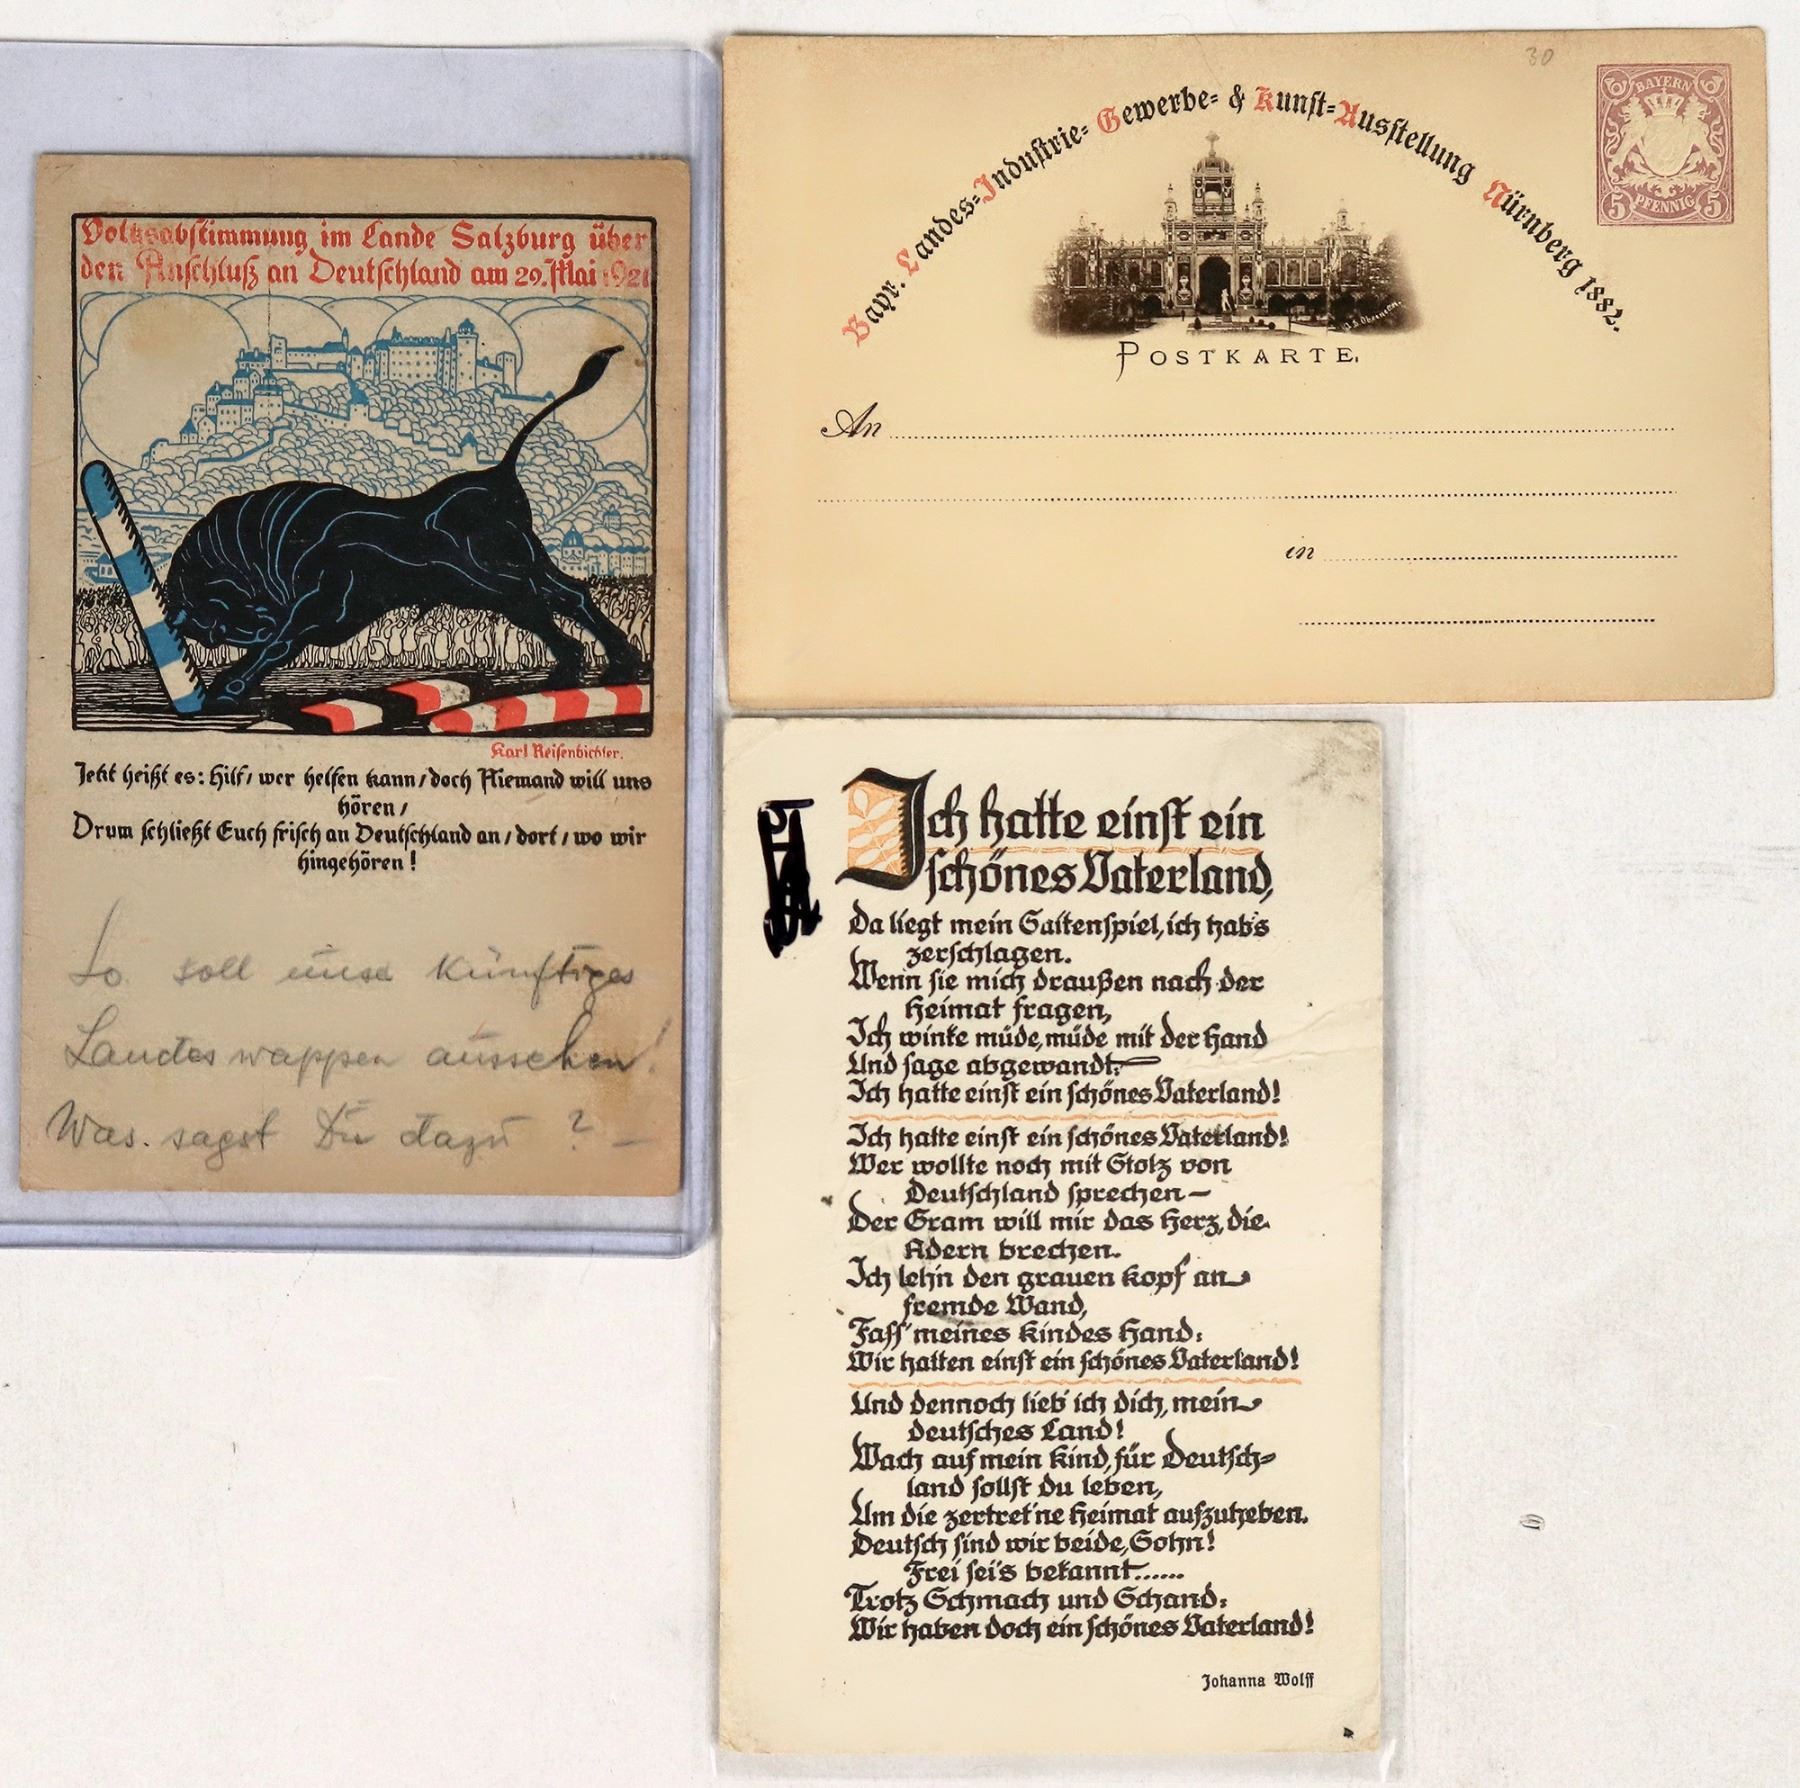 Volksabstimmung im Lande Salzburg über
den Anschluß an Deutschland am 29. Mai 1921
Karl Reisenbichler.
Jetzt heißt es: Hilf, wer helfen kann, doch Niemand will uns
hören,
Drum schließt Euch frisch an Deutschland an, dort, wo wir
hingehören!
So soll unser künftiges
Landeswappen aussehen!
Was sagst Du dazu? –
30
Bayr. Landes-Industrie- Gewerbe- & Kunst-Ausstellung Nürnberg 1882.
BAYERN
5 5
PFENNIG
POSTKARTE.
An
in
Ich hatte einst ein
schönes Vaterland,
Da liegt mein Saitenspiel, ich hab's
zerschlagen.
Wenn sie mich draußen nach der
Heimat fragen,
Ich winke müde, müde mit der Hand
Und sage abgewandt:
Ich hatte einst ein schönes Vaterland!
Ich hatte einst ein schönes Vaterland!
Wer wollte noch mit Stolz von
Deutschland sprechen –
Der Gram will mir das Herz, die
Adern brechen.
Ich lehn den grauen Kopf an
fremde Wand,
Fass' meines Kindes Hand:
Wir hatten einst ein schönes Vaterland!
Und dennoch lieb' ich dich, mein
deutsches Land!
Wach auf mein Kind, für Deutsch-
land sollst du leben,
Um die zertret'ne Heimat aufzuheben.
Deutsch sind wir beide, Sohn!
Frei sei's bekannt......
Trotz Schmach und Schand:
Wir haben doch ein schönes Vaterland!
Johanna Wolff